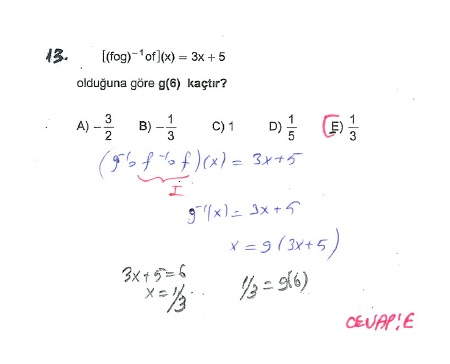 13. [(fog)⁻¹of](x) = 3x + 5
olduğuna göre g(6) kaçtır?
A) -3/2 B) -1/3 C) 1 D) 1/5 E) 1/3
(g⁻¹o f⁻¹o f)(x) = 3x+5
I
g⁻¹(x) = 3x+5
x = g(3x+5)
3x+5=6
x=1/3 1/3 = g(6)
CEVAP:E